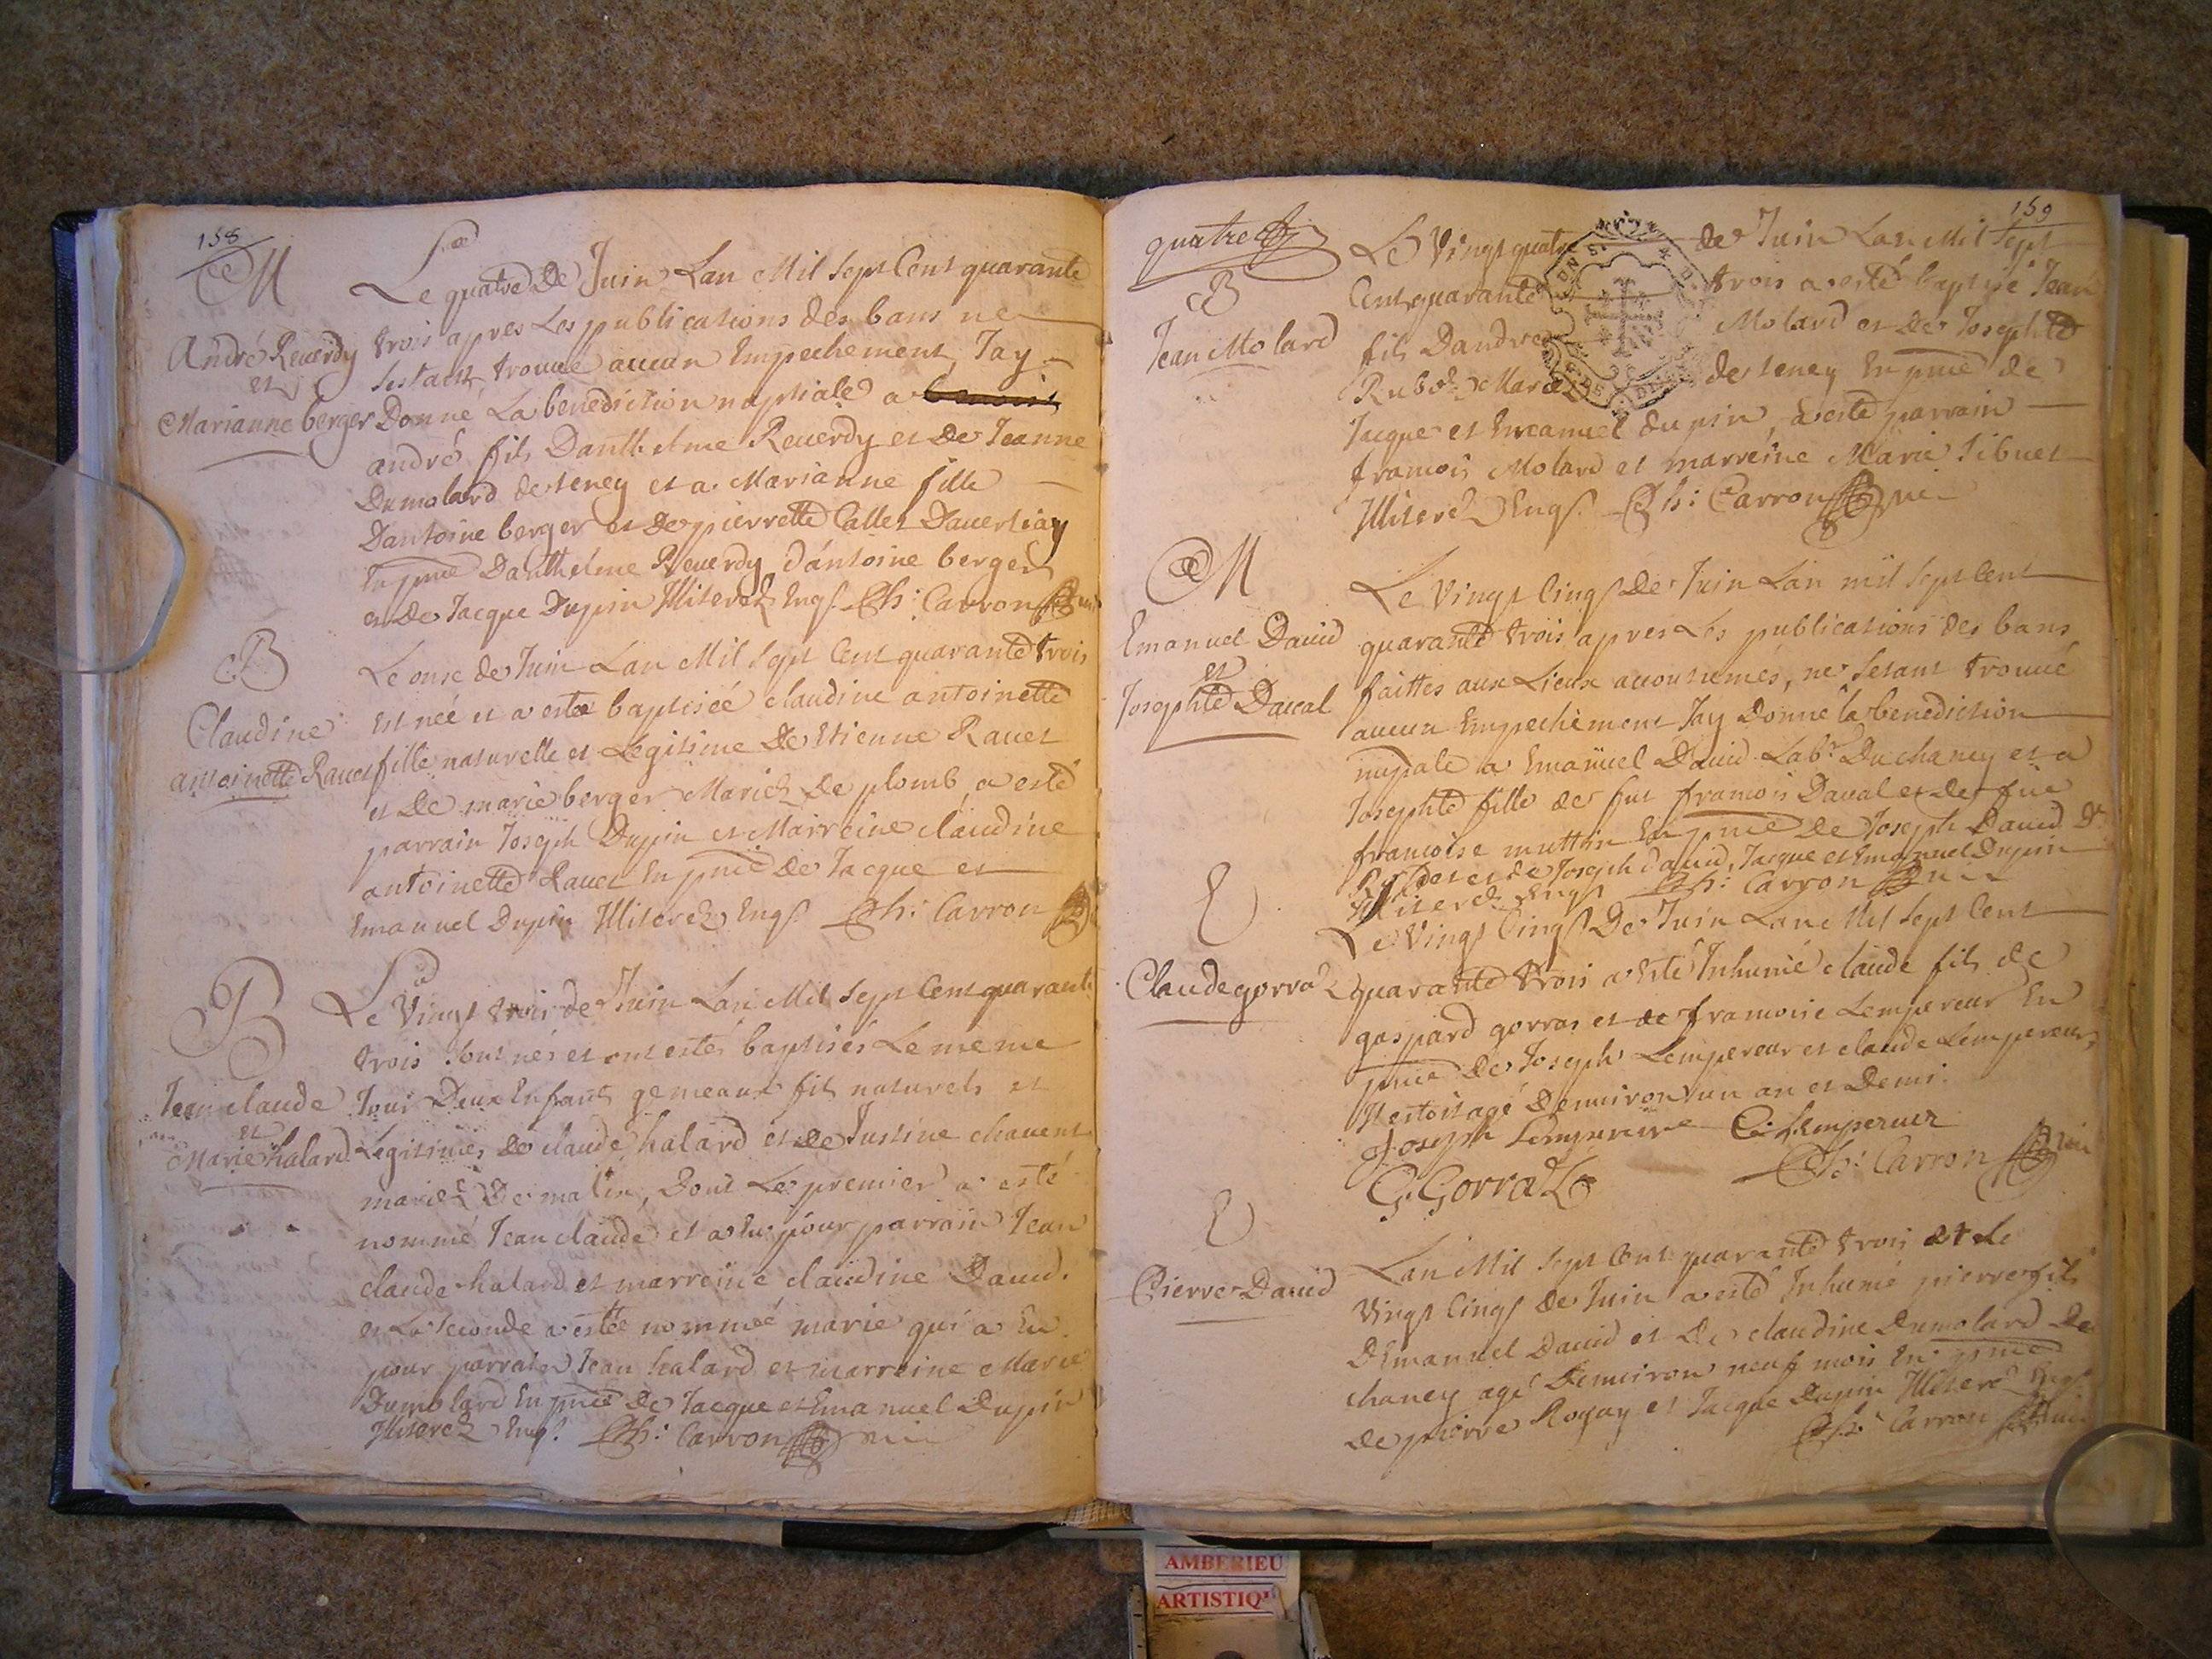 158
M
André Reverdy
et
Marianne berger
Le quatre De Juin Lan Mil Sept Cent quarante
trois apres Les publications des bans ne
sestant trouvé aucun Empechement, Jay
Donné La benediction nuptiale a
andré fils Danthelme Reverdy et De Jeanne
Dumolard de teney et a Marianne fille
Dantoine berger et De pierrette Callet
En pnce Danthelme Reverdy, d'antoine berger
et De Jacque Dupin Illiterez Engs. Ph: Carron
B
Claudine
antoinette Ravet
Le onse de Juin Lan Mil Sept Cent quarante trois
Est néé et a estée baptiséé claudine antoinette
fille naturelle et Legitime De Etienne Ravet
et De marie berger Mariez De plomb, a esté
parrain Joseph Dupin et Marreine claudine
antoinette Ravet En pnce De Jacque et
Emanuel Dupin Illiterez Engs. Ph: Carron
B
Jean claude
et
Marie halard
Le Vingt trois de Juin Lan Mil Sept Cent quarante
trois sont nés et ont estés baptisés Le meme
Jour Deux Enfants gemeaux fils naturels et
Legitimes De claude halard et De Justine chavent
mariez De matin, Dont Le premier a esté
nommé Jean claude et a Eu pour parrain Jean
claude halard et marreine claudine David.
et La Seconde a estée nommée marie qui a Eu
pour parrain Jean halard et marreine Marie
Dumolard En pnce De Jacque et Emanuel Dupin
Illiterez Engs. Ph: Carron
159
quatre
B
Jean Molard
Le Vingt quatre de Juin Lan Mil Sept
Cent quarante trois a esté baptisé Jean
fils Dandré Molard et De Josephte
Rubod Mariez de teney En pnce de
Jacque et Emanuel dupin, a esté parrain
francois Molard et marreine Marie Tibuet
Illiterez Engs. Ph: Carron
M
Emanuel David
et
Josephte Daval
Le Vingt Cinq De Juin Lan mil Sept Cent
quarante trois apres Les publications des bans
faittes aux Lieux accoutumés, ne Setant trouvé
aucun Empechement Jay Donné la benediction
nuptale a Emanuel David Labr. Du chaney et a
Josephte fille de fut francois Daval et de fue
francoise muttin En pnce De Joseph David
et de Joseph david, Jacque et Emanuel Dupin
Illiterez Engs Ph: Carron
E
Claude gorraz
Le Vingt Cinq De Juin Lan Mil Sept Cent
quarante trois a Esté Inhumé claude fils de
gaspard gorras et de francoise Lempereur En
pnce De Joseph Lempereur et claude Lempereur,
Il estoit agé Denviron un an et Demi.
Joseph Lempereur C: Lempereur
G. Gorraz Ph: Carron
E
Pierre David
Lan Mil Sept Cent quarante trois et le
Vingt Cinq De Juin a esté Inhumé pierre fils
DEmanuel David et De claudine Dumolard De
chaney agé Denviron neuf mois En pnce
de pierre Rogay et Jacque Dupin Illiterez Engs
Ph: Carron
AMBERIEU
ARTISTIQ